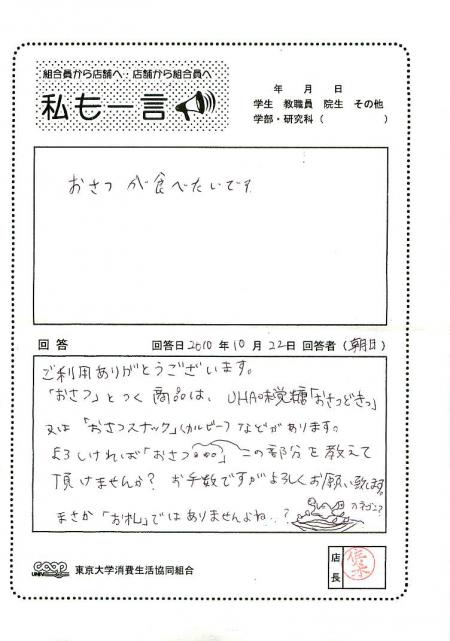 組合員から店舗へ・店舗から組合員へ
私も一言
年 月 日
学生 教職員 院生 その他
学部・研究科（ ）
おさつが食べたいです
回答 回答日2010年10月22日 回答者（朝日）
ご利用ありがとうございます。
「おさつ」とつく商品は、UHA味覚糖「おさつどきっ」
又は「おさつスナック」（カルビー）などがあります。
よろしければ「おさつ○○○」この部分を教えて
頂けませんか？ お手数ですがよろしくお願い致します。
まさか「お札」ではありませんよね‥？
カネゴン？
coop
UNIV
東京大学消費生活協同組合
店長